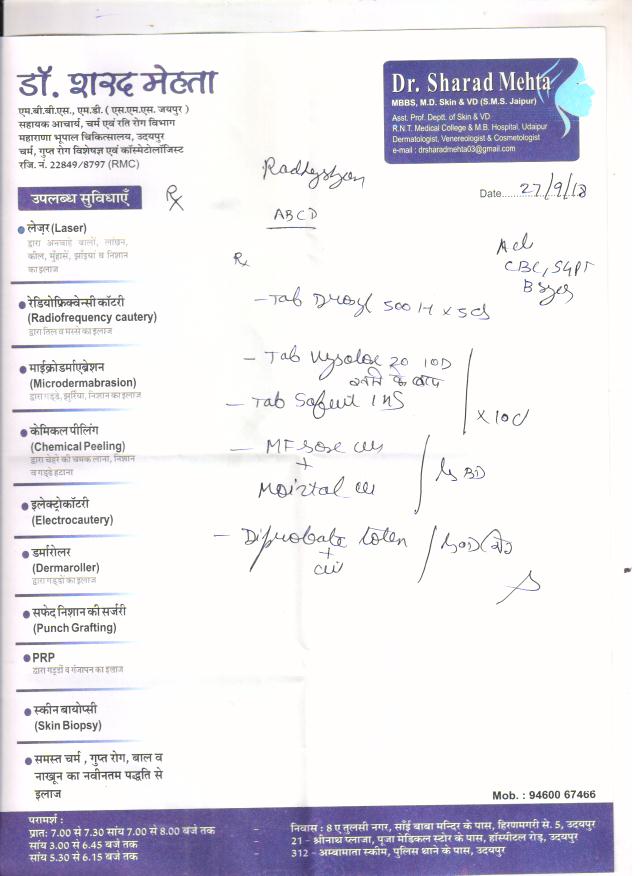 डॉ. शरद मेहता
एम.बी.बी.एस., एम.डी. ( एस.एम.एस. जयपुर )
सहायक आचार्य, चर्म एवं रति रोग विभाग
महाराणा भूपाल चिकित्सालय, उदयपुर
चर्म, गुप्त रोग विशेषज्ञ एवं कॉस्मेटोलॉजिस्ट
रजि. नं. 22849/8797 (RMC)
Dr. Sharad Mehta
MBBS, M.D. Skin & VD (S.M.S. Jaipur)
Asst. Prof. Deptt. of Skin & VD
R.N.T. Medical College & M.B. Hospital, Udaipur
Dermatologist, Venereologist & Cosmetologist
e-mail : drsharadmehta03@gmail.com
Date 27/9/18
ABCD
CBC, SGPT
Tab 500 x 5d
Tab 20 10D
Tab
x 10d
+
BD
+
उपलब्ध सुविधाएँ
लेज़र (Laser)
द्वारा अनचाहे बालों, लांछन,
कील, मुँहासें, झाँइया व निशान
का इलाज
रेडियोफ्रिक्वेन्सी कॉटरी
(Radiofrequency cautery)
द्वारा तिल व मस्से का इलाज
माईक्रोडर्माएब्रेशन
(Microdermabrasion)
द्वारा गड्डे, झुर्रिया, निशान का इलाज
केमिकल पीलिंग
(Chemical Peeling)
द्वारा चेहरे की चमक लाना, निशान
व गड्डे हटाना
इलेक्ट्रोकॉटरी
(Electrocautery)
डर्मारोलर
(Dermaroller)
द्वारा गड्डों का इलाज
सफेद निशान की सर्जरी
(Punch Grafting)
PRP
द्वारा गड्डों व गंजापन का इलाज
स्कीन बायोप्सी
(Skin Biopsy)
समस्त चर्म , गुप्त रोग, बाल व
नाखून का नवीनतम पद्धति से
इलाज
Mob. : 94600 67466
परामर्श :
प्रात: 7.00 से 7.30 सांय 7.00 से 8.00 बजे तक - निवास : 8 ए तुलसी नगर, साँई बाबा मन्दिर के पास, हिरणमगरी से. 5, उदयपुर
सांय 3.00 से 6.45 बजे तक - 21 - श्रीनाथ प्लाजा, पूजा मेडिकल स्टोर के पास, हॉस्पीटल रोड़, उदयपुर
सांय 5.30 से 6.15 बजे तक - 312 - अम्बामाता स्कीम, पुलिस थाने के पास, उदयपुर